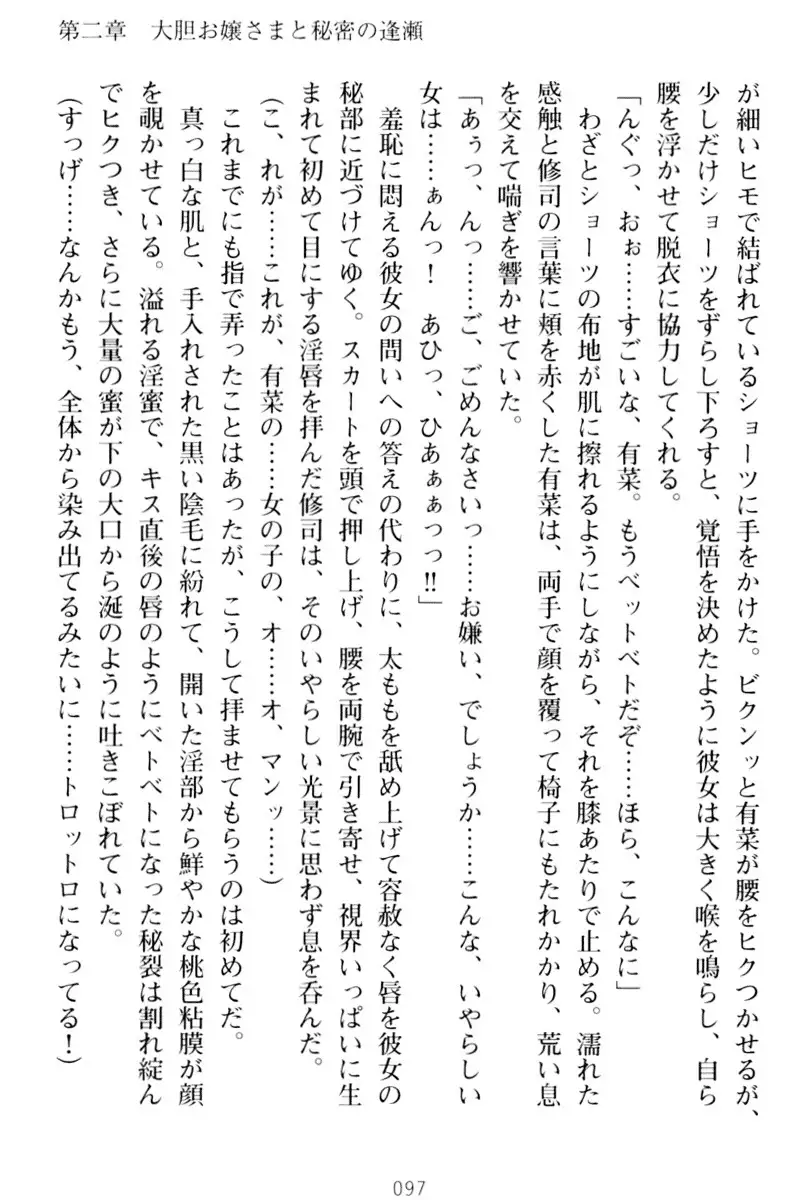 第二章　大胆お嬢さまと秘密の逢瀬
が細いヒモで結ばれているショーツに手をかけた。ビクンッと有菜が腰をヒクつかせるが、
少しだけショーツをずらし下ろすと、覚悟を決めたように彼女は大きく喉を鳴らし、自ら
腰を浮かせて脱衣に協力してくれる。
「んぐっ、おぉ……すごいな、有菜。もうベットベトだぞ……ほら、こんなに」
わざとショーツの布地が肌に擦れるようにしながら、それを膝あたりで止める。濡れた
感触と修司の言葉に頬を赤くした有菜は、両手で顔を覆って椅子にもたれかかり、荒い息
を交えて喘ぎを響かせていた。
「あぅっ、んっ……ご、ごめんなさいっ……お嫌い、でしょうか……こんな、いやらしい
女は……ぁんっ！　あひっ、ひあぁぁっっ!!」
羞恥に悶える彼女の問いへの答えの代わりに、太ももを舐め上げて容赦なく唇を彼女の
秘部に近づけてゆく。スカートを頭で押し上げ、腰を両腕で引き寄せ、視界いっぱいに生
まれて初めて目にする淫唇を拝んだ修司は、そのいやらしい光景に思わず息を呑んだ。
(こ、れが……これが、有菜の……女の子の、オ……オ、マンッ……)
これまでにも指で弄ったことはあったが、こうして拝ませてもらうのは初めてだ。
真っ白な肌と、手入れされた黒い陰毛に紛れて、開いた淫部から鮮やかな桃色粘膜が顔
を覗かせている。溢れる淫蜜で、キス直後の唇のようにベトベトになった秘裂は割れ綻ん
でヒクつき、さらに大量の蜜が下の大口から涎のように吐きこぼれていた。
(すっげ……なんかもう、全体から染み出てるみたいに……トロットロになってる！)
097